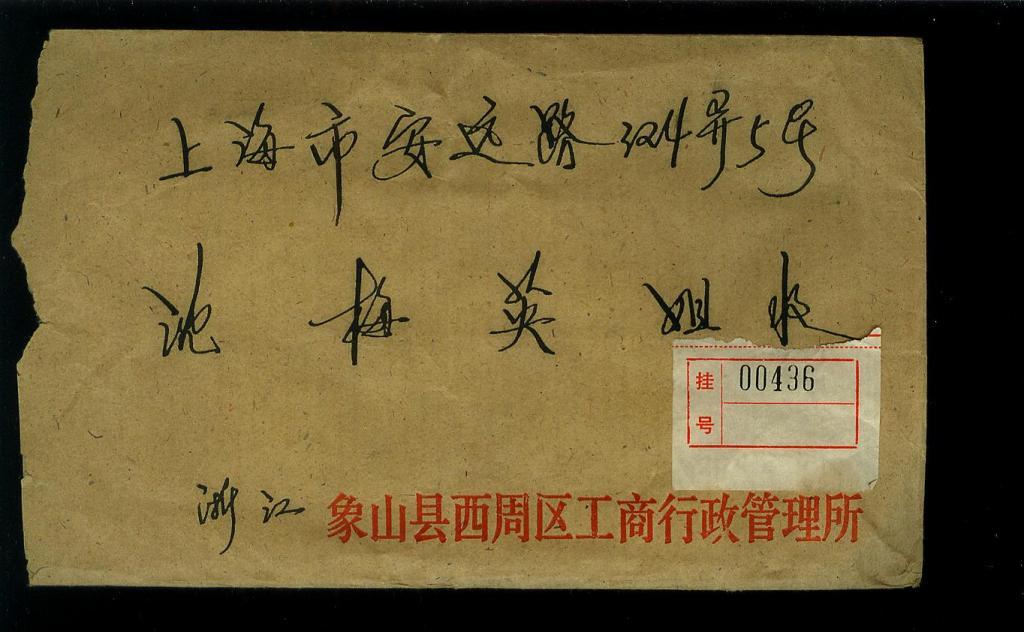 上海市安远路324弄5号
沈梅英姐收
挂号
00436
浙江 象山县西周区工商行政管理所